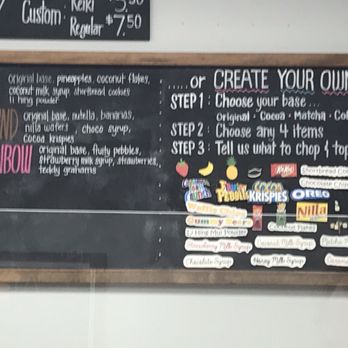 Custom : Reiki 5.50
Regular $7.50
Original base, pineapples, coconut flakes,
coconut milk syrup, shortbread cookies
li hing powder
original base, nutella, bananas,
nilla wafers, choco syrup,
cocoa krispies
original base, fruity pebbles,
strawberry milk syrup, strawberries,
teddy grahams
..... or CREATE YOUR OWN
STEP 1 : Choose your base...
Original · Cocoa · Matcha ·
STEP 2 : Choose any 4 items
STEP 3 : Tell us what to chop & top
Shortbread
Chocolate
Fruity
Pebbles
COCOA
KRISPIES
OREO
Nilla
Waffle
Gummy Bears
Li Hing Mui Powder
Coconut Flakes
Strawberry Milk Syrup
Coconut Milk Syrup
Matcha
Chocolate Syrup
Honey Milk Syrup